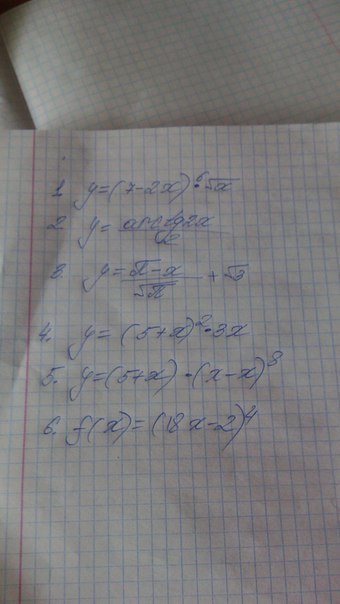 1. y=(7-2x)⁶·√x
2. y= arctg2x / √2
3. y= π-x / √π + √3
4. y= (5+x)²·3x
5. y=(5+x)·(x-x)³
6. f(x)=(18x-2)⁴